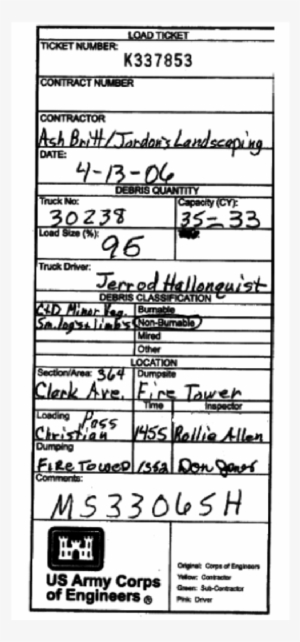 LOAD TICKET
TICKET NUMBER:
K337853
CONTRACT NUMBER
CONTRACTOR
Ash Britt/Jordon's Landscaping
DATE:
4-13-06
DEBRIS QUANTITY
Truck No: Capacity (CY):
30238 35-33
Load Size (%):
95
Truck Driver:
Jerrod Hallonquist
DEBRIS CLASSIFICATION
C+D. Minor Veg. Burnable
Sm. logs+limbs Non-Burnable
Mixed
Other
LOCATION
Section/Area: 364 Dumpsite
Clark Ave. Fire Tower
Time Inspector
Loading Pass
Christian 1455 Rollie Allen
Dumping
FIRE TOWER Don Jones
Comments:
MS33065H
US Army Corps
of Engineers ®
Original: Corps of Engineers
Yellow: Contractor
Green: Sub-Contractor
Pink: Driver